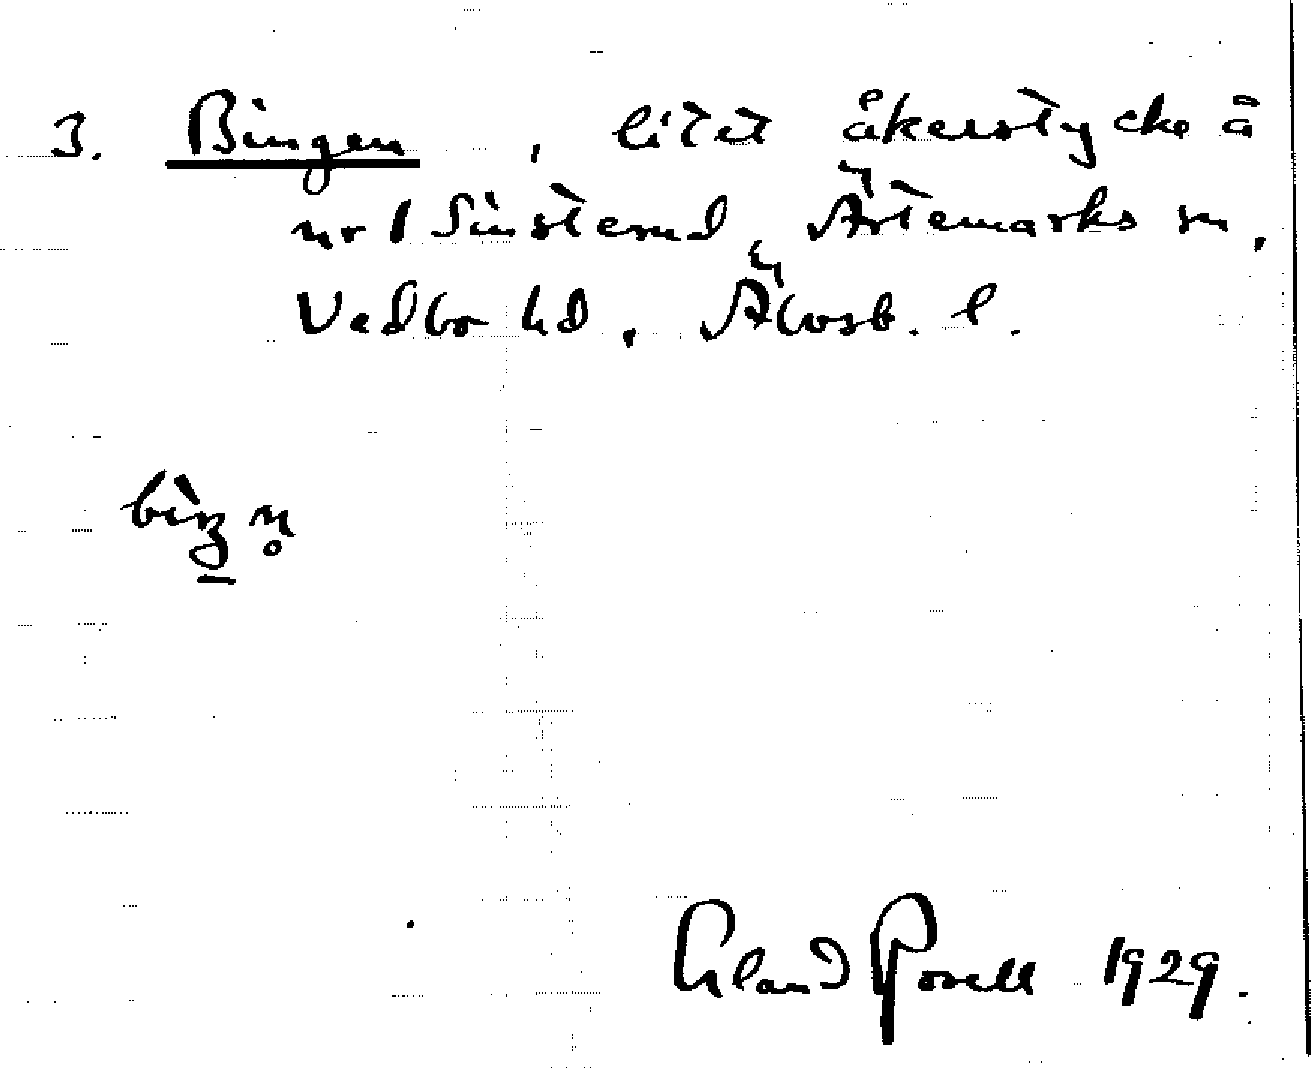 3. Bingen, litet åkerstycke å
nr 1 Sinsterud, Ärtemarks sn,
Vedbo hd, Älvsb. l.
1929.